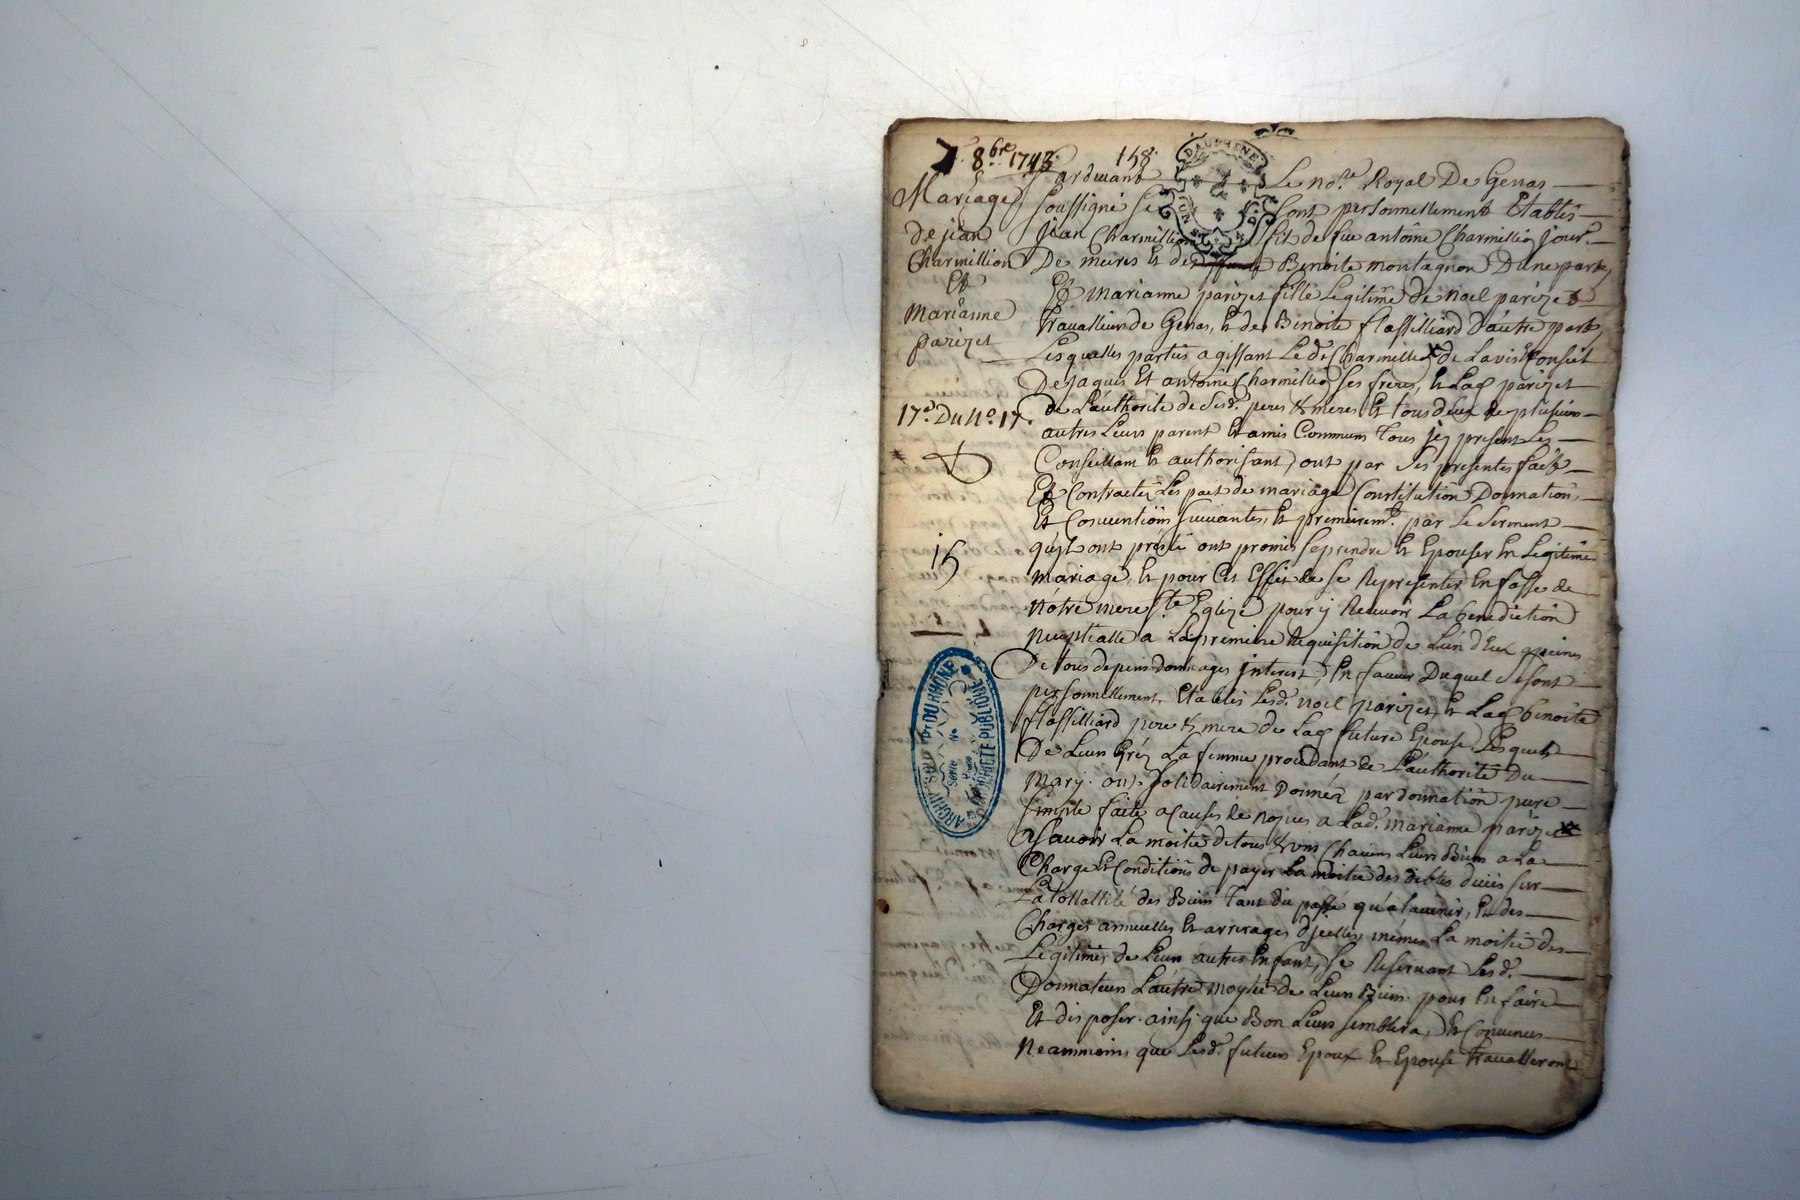 7. 8bre 1743.
158.
DAUPHINE
Mariage
de jean
Charmillion
Et
Marianne
parizet
17e. Du No. 17.
15
ARCHIVES DU DEPT DU RHÔNE
Série No
PROPRIÉTÉ PUBLIQUE
Pardevant Le nore. Royal De Genas
soussigné se sont personnellement Etablis
jean Charmillion fils de feu antoine Charmillion jour.
De meires Et de Benoite montagnon D'une part,
Et Marianne parizet fille Legitime de noel parizet
travalleur de Genas, Et de Benoite flassilliard D'autre part,
Lesquelles parties agissant Le d. Charmillion de Lavis Conseil
De jaques Et antoine Charmillion ses freres, Et Lad. parizet
de L'authorité de sesd. peres & meres Et tous deux de plusieurs
autres Leurs parent Et amis Communs Tous jcy present Les
Conseillant Et authorisant, ont par ses presentes fait
Et Contracté Les pait de mariage Constitution Donnation
Et Conventions suivantes, Et premieremt. par Le serment
qu'jls ont presté ont promis se prendre Et Epouser En Legitime
mariage, Et pour Cet Effet de se Representer En fasse de
Nôtre mere ste. Eglize pour y Recevoir La benediction
nuptialle a La premiere Requisition de L'un d'Eux a peines
De tous depens dommages jnterest, En faveur Duquel se sont
personnellement Etablis Lesd. noel parizet, Et Lad. benoite
flassilliard pere & mere de Lad. future Epouse, Lesquels
De Leurs gréz La femme procedant de L'authorité du
Mary. ont solidairement Donnéz par donnation pure
simple faite a Causes de nopces a Lad. marianne parizet
a sçavoir La moitié de tous & uns Chacuns Leurs Biens a La
Charge Et Conditions de payer La moitié des debtes dües sur
La tottallité des Biens Tant du passé qu'a l'avenir, Et des
Charges annuelles Et arrerages d'jcelles, mêmes La moitié des
Legitimes de Leurs autres Enfants, se Reservant Lesd.
Donnateurs L'autre moytié de Leurs Biens pour En faire
Et disposer ainsy que Bon Leurs semblera, Et Convenus
Neammoins que Lesd. futeurs Epoux Et Epouse travalleront